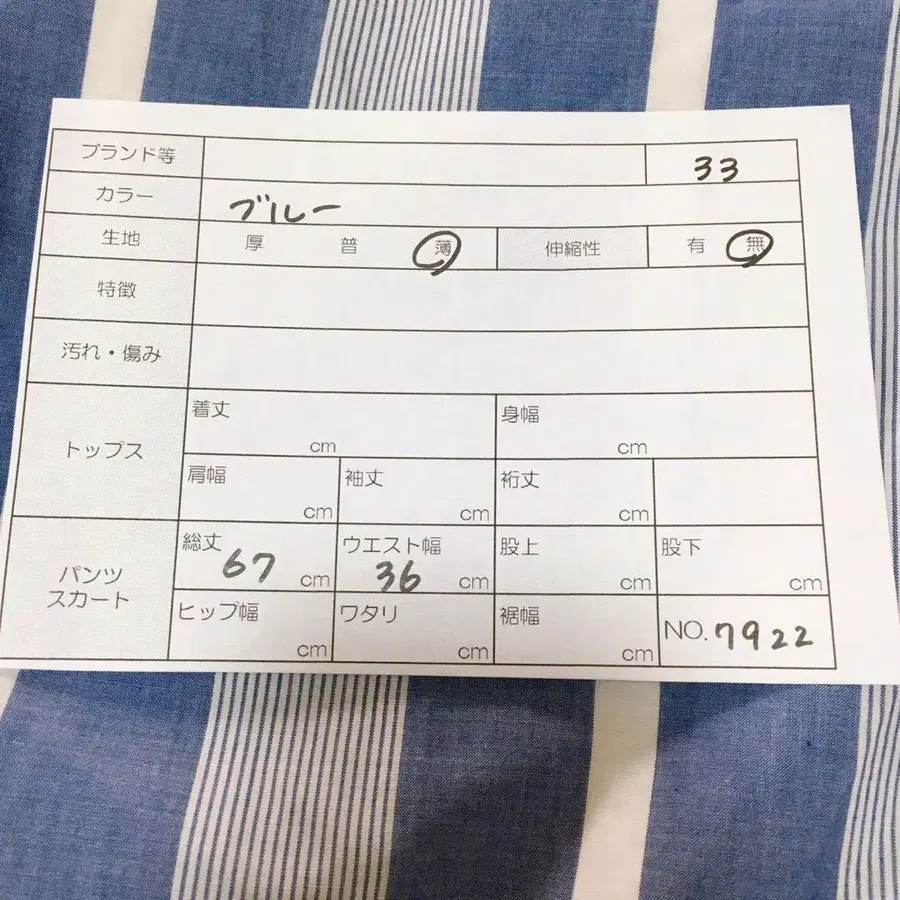 ブランド等 33
カラー ブルー
生地 厚 普 薄 伸縮性 有 無
特徴
汚れ・傷み
トップス 着丈 cm 身幅 cm
肩幅 cm 袖丈 cm 裄丈 cm
パンツ スカート 総丈 67 cm ウエスト幅 36 cm 股上 cm 股下 cm
ヒップ幅 cm ワタリ cm 裾幅 cm NO. 7922